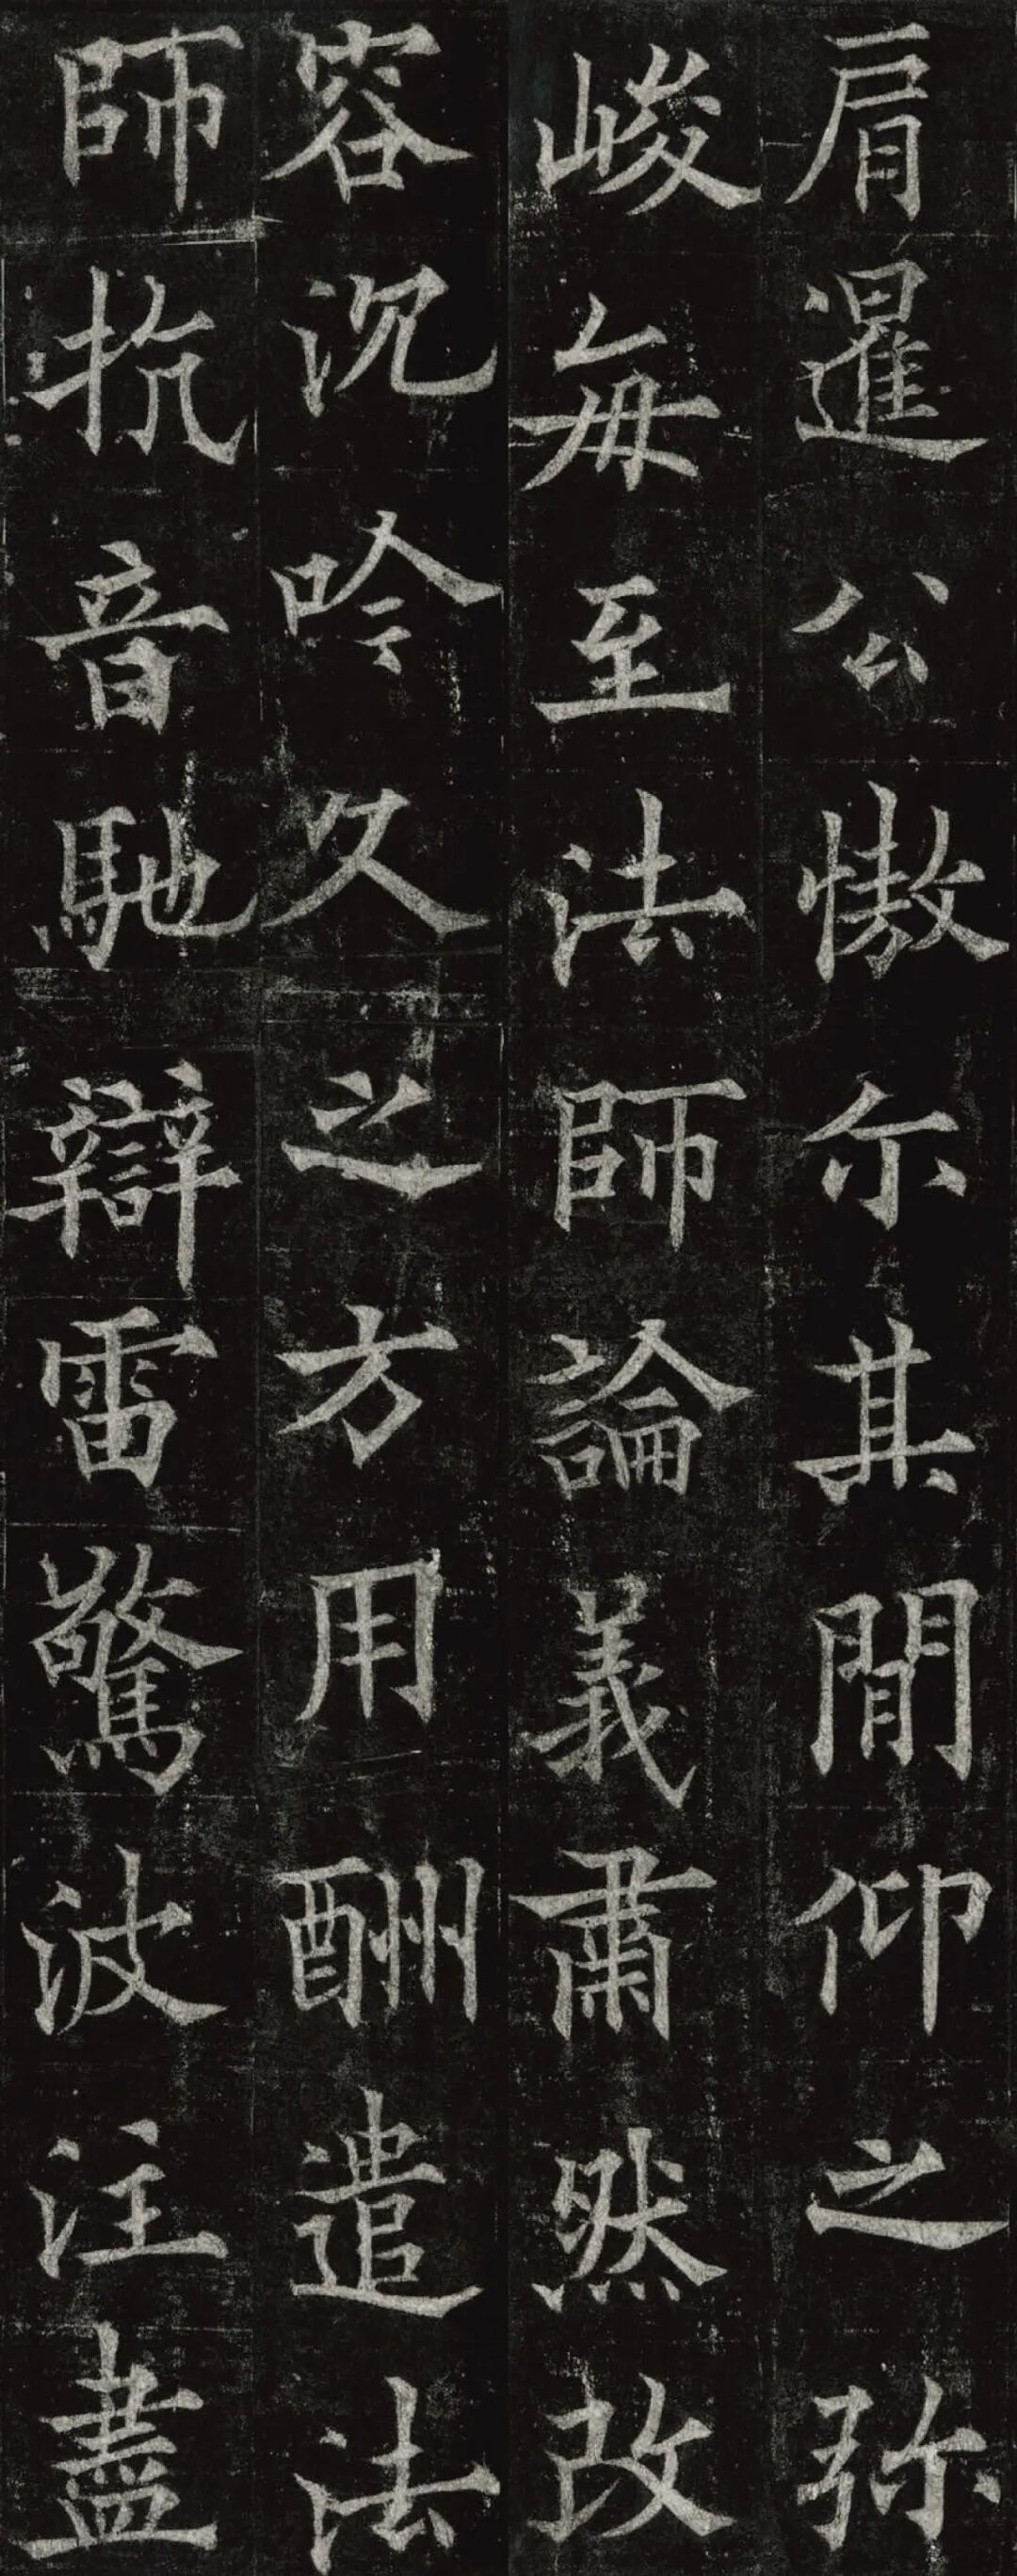 肩暹公慠尒其間仰之弥
峻每至法師論義肅然改
容沉吟久之方用酬遣法
師抗音馳辯雷驚波注盡